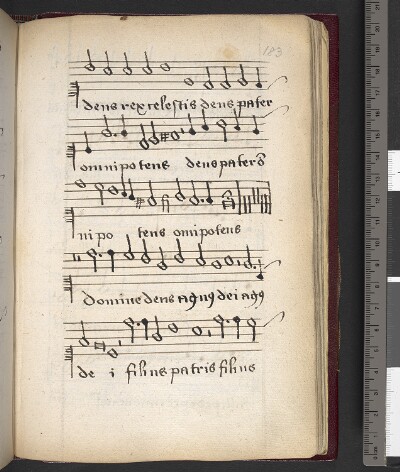 183
deus rex celestis deus pater
omnipotens deus pater õ
nipo tens omipotens
Domine deus agnus dei agnus
de i filius patris filius